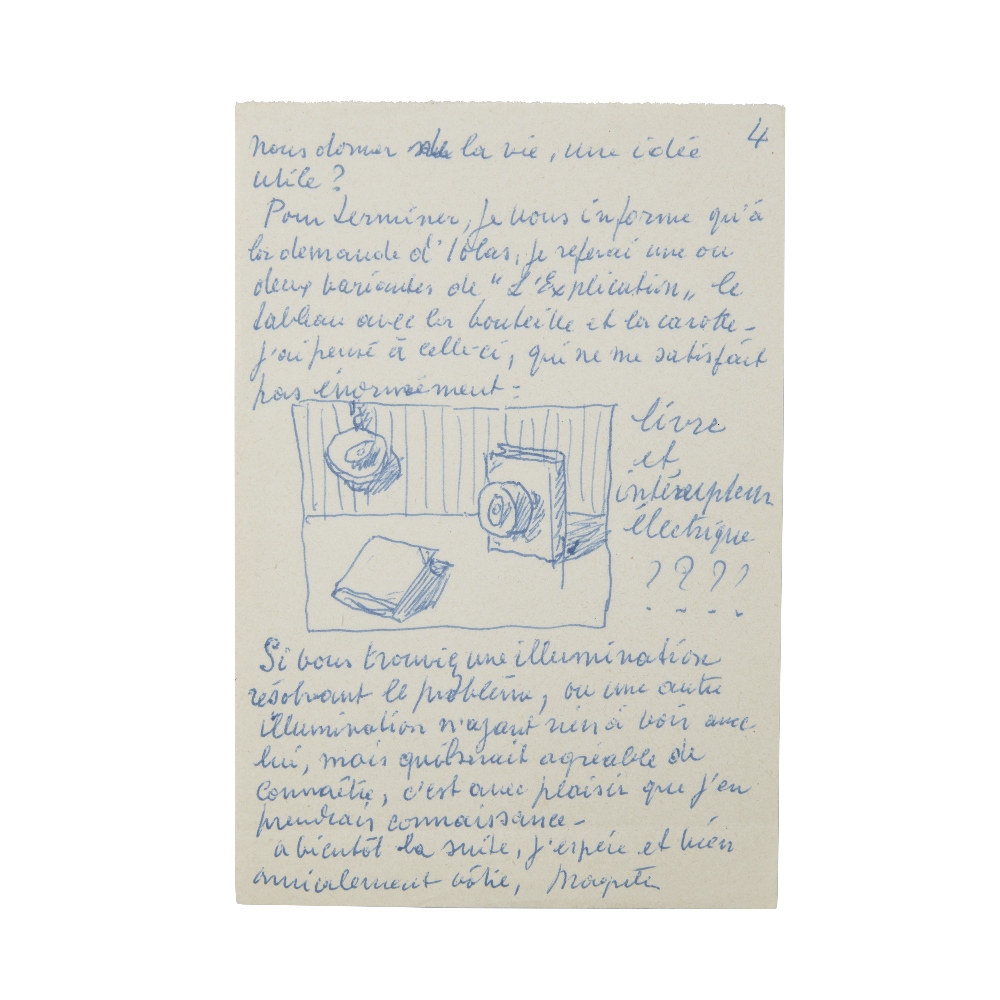 4
nous donner de la vie, une idée
utile ?
Pour terminer, je vous informe qu'à
la demande d'Iolas, je referai une ou
deux variantes de "L'Explication„ le
tableau avec la bouteille et la carotte –
j'ai pensé à celle-ci, qui ne me satisfait
pas énormément :
livre
et
interrupteur
électrique
? ? ? ?
Si vous trouviez une illumination
résolvant le problème, ou une autre
illumination n'ayant rien à voir avec
lui, mais qu'il serait agréable de
connaître, c'est avec plaisir que j'en
prendrais connaissance –
à bientôt la suite, j'espère et bien
amicalement vôtre, Magritte